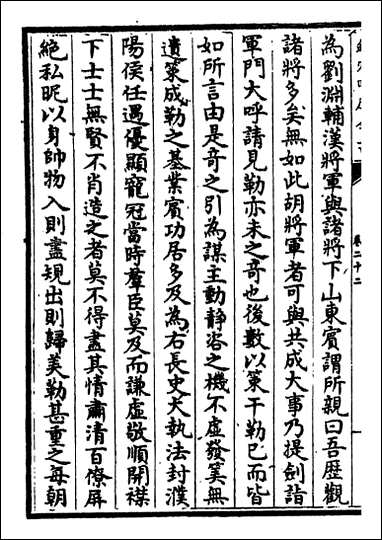 為劉淵輔漢將軍與諸將下山東賔謂所親曰吾歴觀
諸將多矣無如此胡將軍者可與共成大事乃提劍詣
軍門大呼請見勒亦未之奇也後數以策干勒已而皆
如所言由是奇之引為謀主動静咨之機不虚發筭無
遺策成勒之基業賔功居多及為右長史大執法封濮
陽侯任遇優顯寵冠當時羣臣莫及而謙虚敬順開襟
下士士無賢不肖造之者莫不得盡其情肅清百僚屏
絶私昵以身帥物入則盡規出則歸美勒甚重之每朝
卷二十二